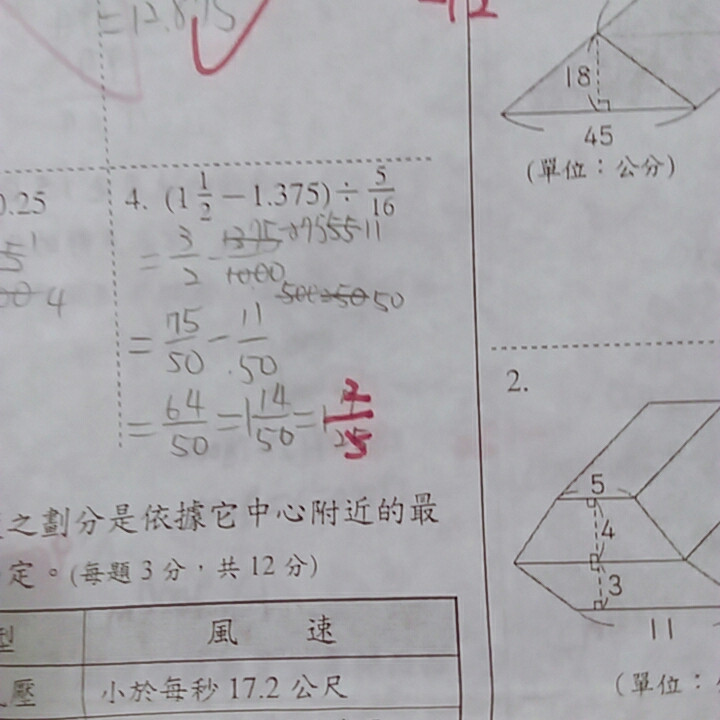 =12.875
-12
18
45
(單位：公分)
0.25
4. (1 1/2 - 1.375) ÷ 5/16
= 3/2 - 1375/1000 275 55 11
500 250 50
4
= 75/50 - 11/50
= 64/50 = 1 14/50 = 1 7/25
2.
5
4
3
11
(單位：
之劃分是依據它中心附近的最
定。(每題 3 分，共 12 分)
型 風 速
壓 小於每秒 17.2 公尺